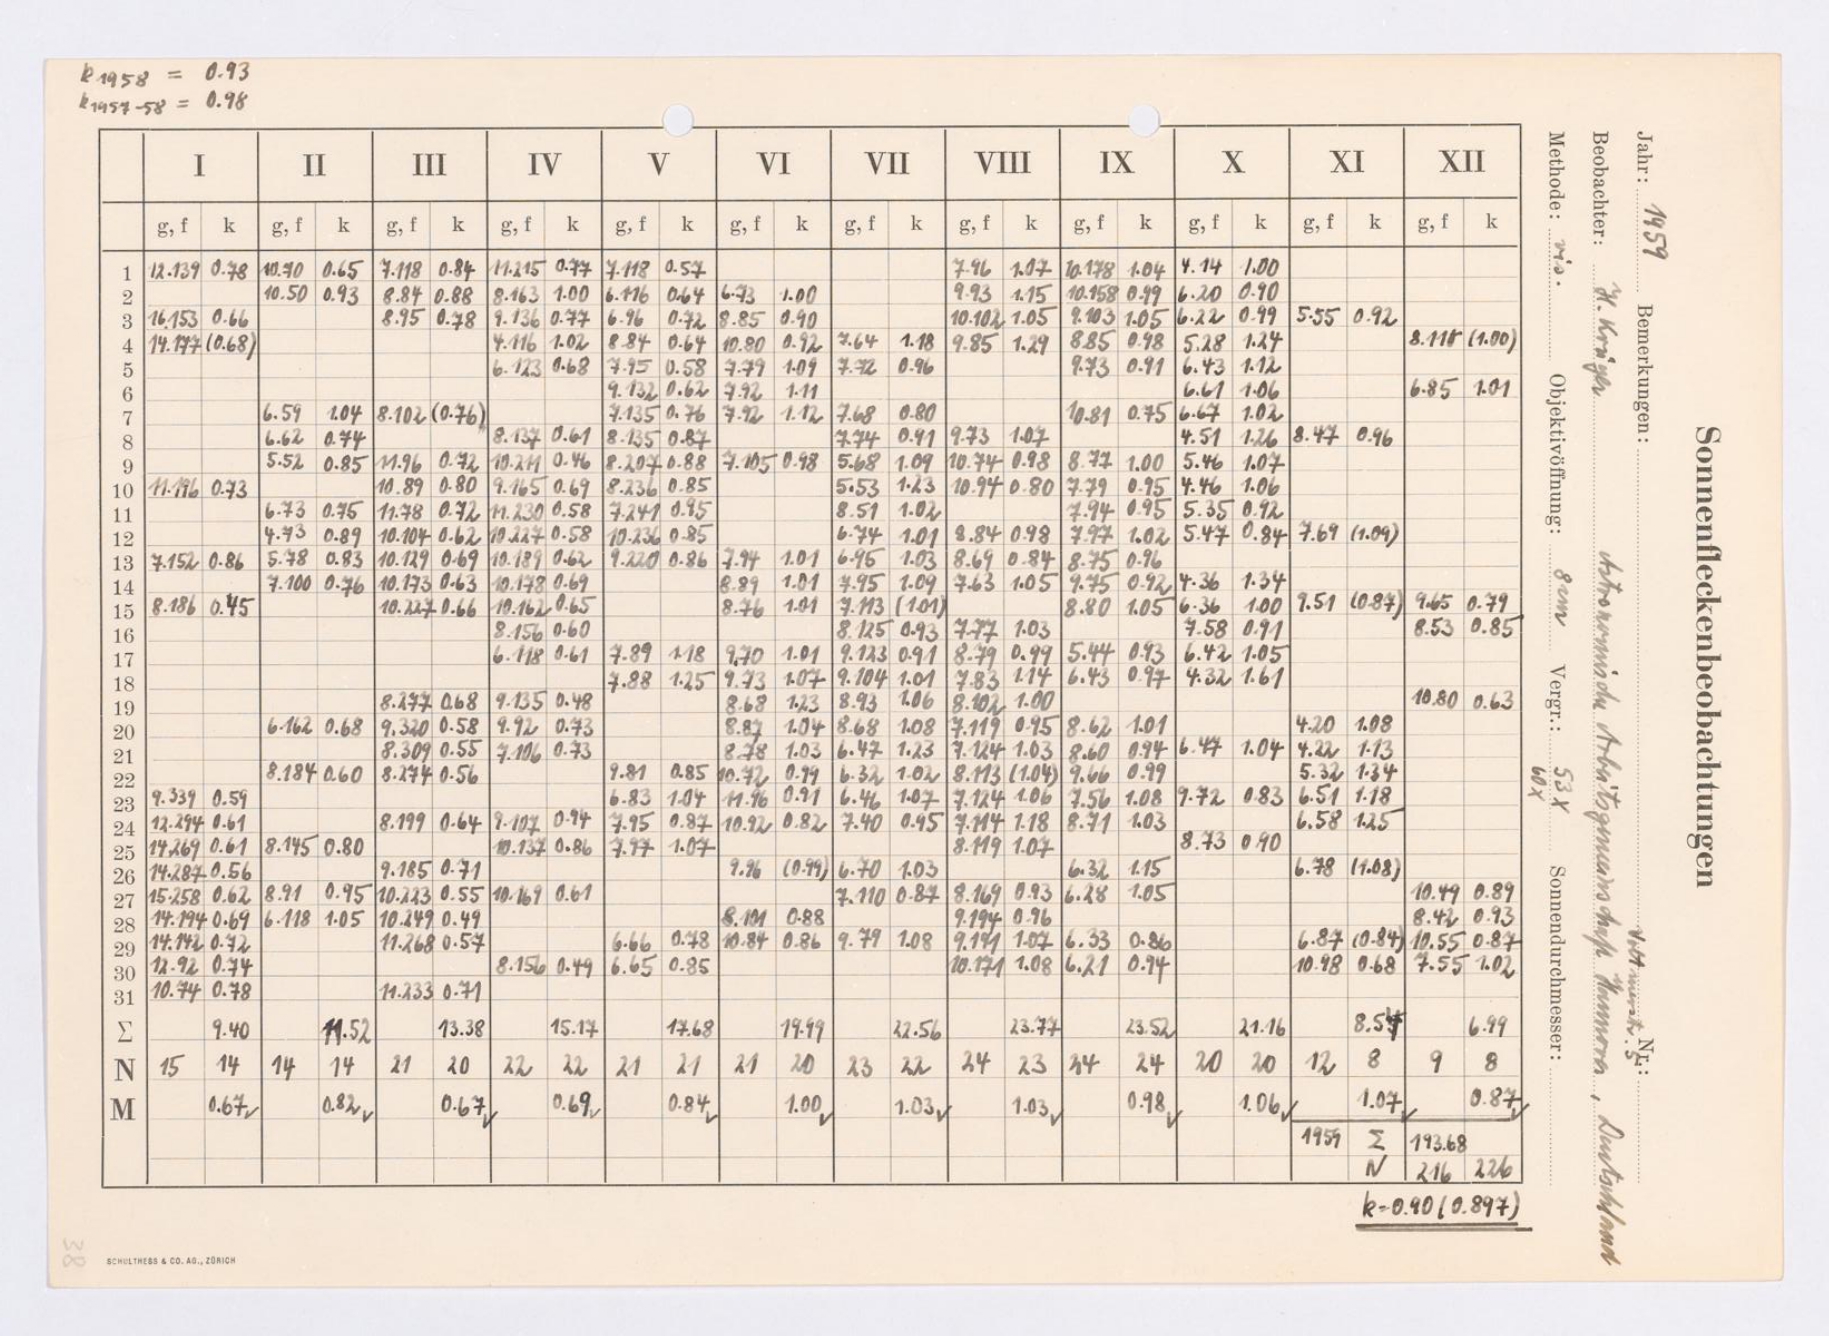 k 1958 = 0.93
k 1957-58 = 0.98
Sonnenfleckenbeobachtungen
Jahr: 1959 Bemerkungen: Nr.:
Beobachter: H. Krüger Astronomische Arbeitsgemeinschaft Hannover, Deutschland
Methode: vis. Objektivöffnung: 8cm Vergr.: 53x Sonnendurchmesser:
60x
I II III IV V VI VII VIII IX X XI XII
g, f k g, f k g, f k g, f k g, f k g, f k g, f k g, f k g, f k g, f k g, f k g, f k
1 12.139 0.78 10.70 0.65 7.118 0.84 11.215 0.77 7.118 0.57 7.96 1.07 10.178 1.04 4.14 1.00
2 10.50 0.93 8.84 0.88 8.163 1.00 6.116 0.64 6.73 1.00 9.93 1.15 10.158 0.99 6.20 0.90
3 16.153 0.66 8.95 0.78 9.136 0.77 6.96 0.72 8.85 0.90 10.102 1.05 9.103 1.05 6.22 0.99 5.55 0.92
4 14.177 (0.68) 4.116 1.02 8.84 0.64 10.80 0.92 7.64 1.18 9.85 1.29 8.85 0.98 5.28 1.24 8.118 (1.00)
5 6.123 0.68 7.95 0.58 7.79 1.09 7.72 0.96 9.73 0.91 6.43 1.12
6 9.132 0.62 7.92 1.11 6.61 1.06 6.85 1.01
7 6.59 1.04 8.102 (0.76) 7.135 0.76 7.92 1.12 7.68 0.80 10.81 0.75 6.67 1.02
8 6.62 0.74 8.137 0.61 8.135 0.87 7.74 0.91 9.73 1.07 4.51 1.26 8.47 0.96
9 5.52 0.85 11.96 0.72 10.211 0.46 8.207 0.88 7.105 0.98 5.68 1.09 10.74 0.98 8.77 1.00 5.46 1.07
10 11.196 0.73 10.89 0.80 9.165 0.69 8.236 0.85 5.53 1.23 10.94 0.80 7.79 0.95 4.46 1.06
11 6.73 0.75 11.78 0.72 11.230 0.58 7.241 0.95 8.51 1.02 7.94 0.95 5.35 0.92
12 4.73 0.89 10.104 0.62 10.227 0.58 10.236 0.85 6.74 1.01 8.84 0.98 7.97 1.02 5.47 0.84 7.69 (1.09)
13 7.152 0.86 5.78 0.83 10.129 0.69 10.189 0.62 9.220 0.86 7.94 1.01 6.95 1.03 8.69 0.84 8.75 0.96
14 7.100 0.76 10.173 0.63 10.178 0.69 8.89 1.01 7.95 1.09 7.63 1.05 9.75 0.92 4.36 1.34
15 8.186 0.45 10.227 0.66 10.162 0.65 8.76 1.01 7.113 (1.01) 8.80 1.05 6.36 1.00 9.51 (0.87) 9.65 0.79
16 8.156 0.60 8.125 0.93 7.77 1.03 7.58 0.91 8.53 0.85
17 6.118 0.61 7.89 1.18 9.70 1.01 9.123 0.91 8.79 0.99 5.44 0.93 6.42 1.05
18 7.88 1.25 9.73 1.07 9.104 1.01 7.83 1.14 6.43 0.97 4.32 1.61
19 8.277 0.68 9.135 0.48 8.68 1.23 8.93 1.06 8.102 1.00 10.80 0.63
20 6.162 0.68 9.320 0.58 9.92 0.73 8.87 1.04 8.68 1.08 7.119 0.95 8.62 1.01 4.20 1.08
21 8.309 0.55 7.106 0.73 8.78 1.03 6.47 1.23 7.124 1.03 8.60 0.94 6.47 1.04 4.22 1.13
22 8.184 0.60 8.274 0.56 9.81 0.85 10.72 0.99 6.32 1.02 8.113 (1.04) 9.66 0.99 5.32 1.34
23 9.339 0.59 6.83 1.04 11.96 0.91 6.46 1.07 7.124 1.06 7.56 1.08 9.72 0.83 6.51 1.18
24 12.294 0.61 8.199 0.64 9.107 0.94 7.95 0.87 10.92 0.82 7.40 0.95 7.114 1.18 8.71 1.03 6.58 1.25
25 14.269 0.61 8.145 0.80 10.137 0.86 7.97 1.07 8.119 1.07 8.73 0.90
26 14.287 0.56 9.185 0.71 9.96 (0.99) 6.70 1.03 6.32 1.15 6.78 (1.08)
27 15.258 0.62 8.91 0.95 10.223 0.55 10.169 0.61 7.110 0.87 8.169 0.93 6.28 1.05 10.49 0.89
28 14.194 0.69 6.118 1.05 10.249 0.49 8.101 0.88 9.194 0.96 8.42 0.93
29 14.142 0.72 11.268 0.57 6.66 0.78 10.84 0.86 9.79 1.08 9.191 1.07 6.33 0.86 6.87 (0.84) 10.55 0.87
30 12.92 0.74 8.156 0.49 6.65 0.85 10.171 1.08 6.21 0.94 10.98 0.68 7.55 1.02
31 10.74 0.78 11.233 0.71
Σ 9.40 11.52 13.38 15.17 17.68 19.99 22.56 23.77 23.52 21.16 8.54 6.99
N 15 14 14 14 21 20 22 22 21 21 21 20 23 22 24 23 24 24 20 20 12 8 9 8
M 0.67 0.82 0.67 0.69 0.84 1.00 1.03 1.03 0.98 1.06 1.07 0.87
1959 Σ 193.68
N 216 226
k=0.90 (0.897)
38
SCHULTHESS & CO. AG., ZÜRICH